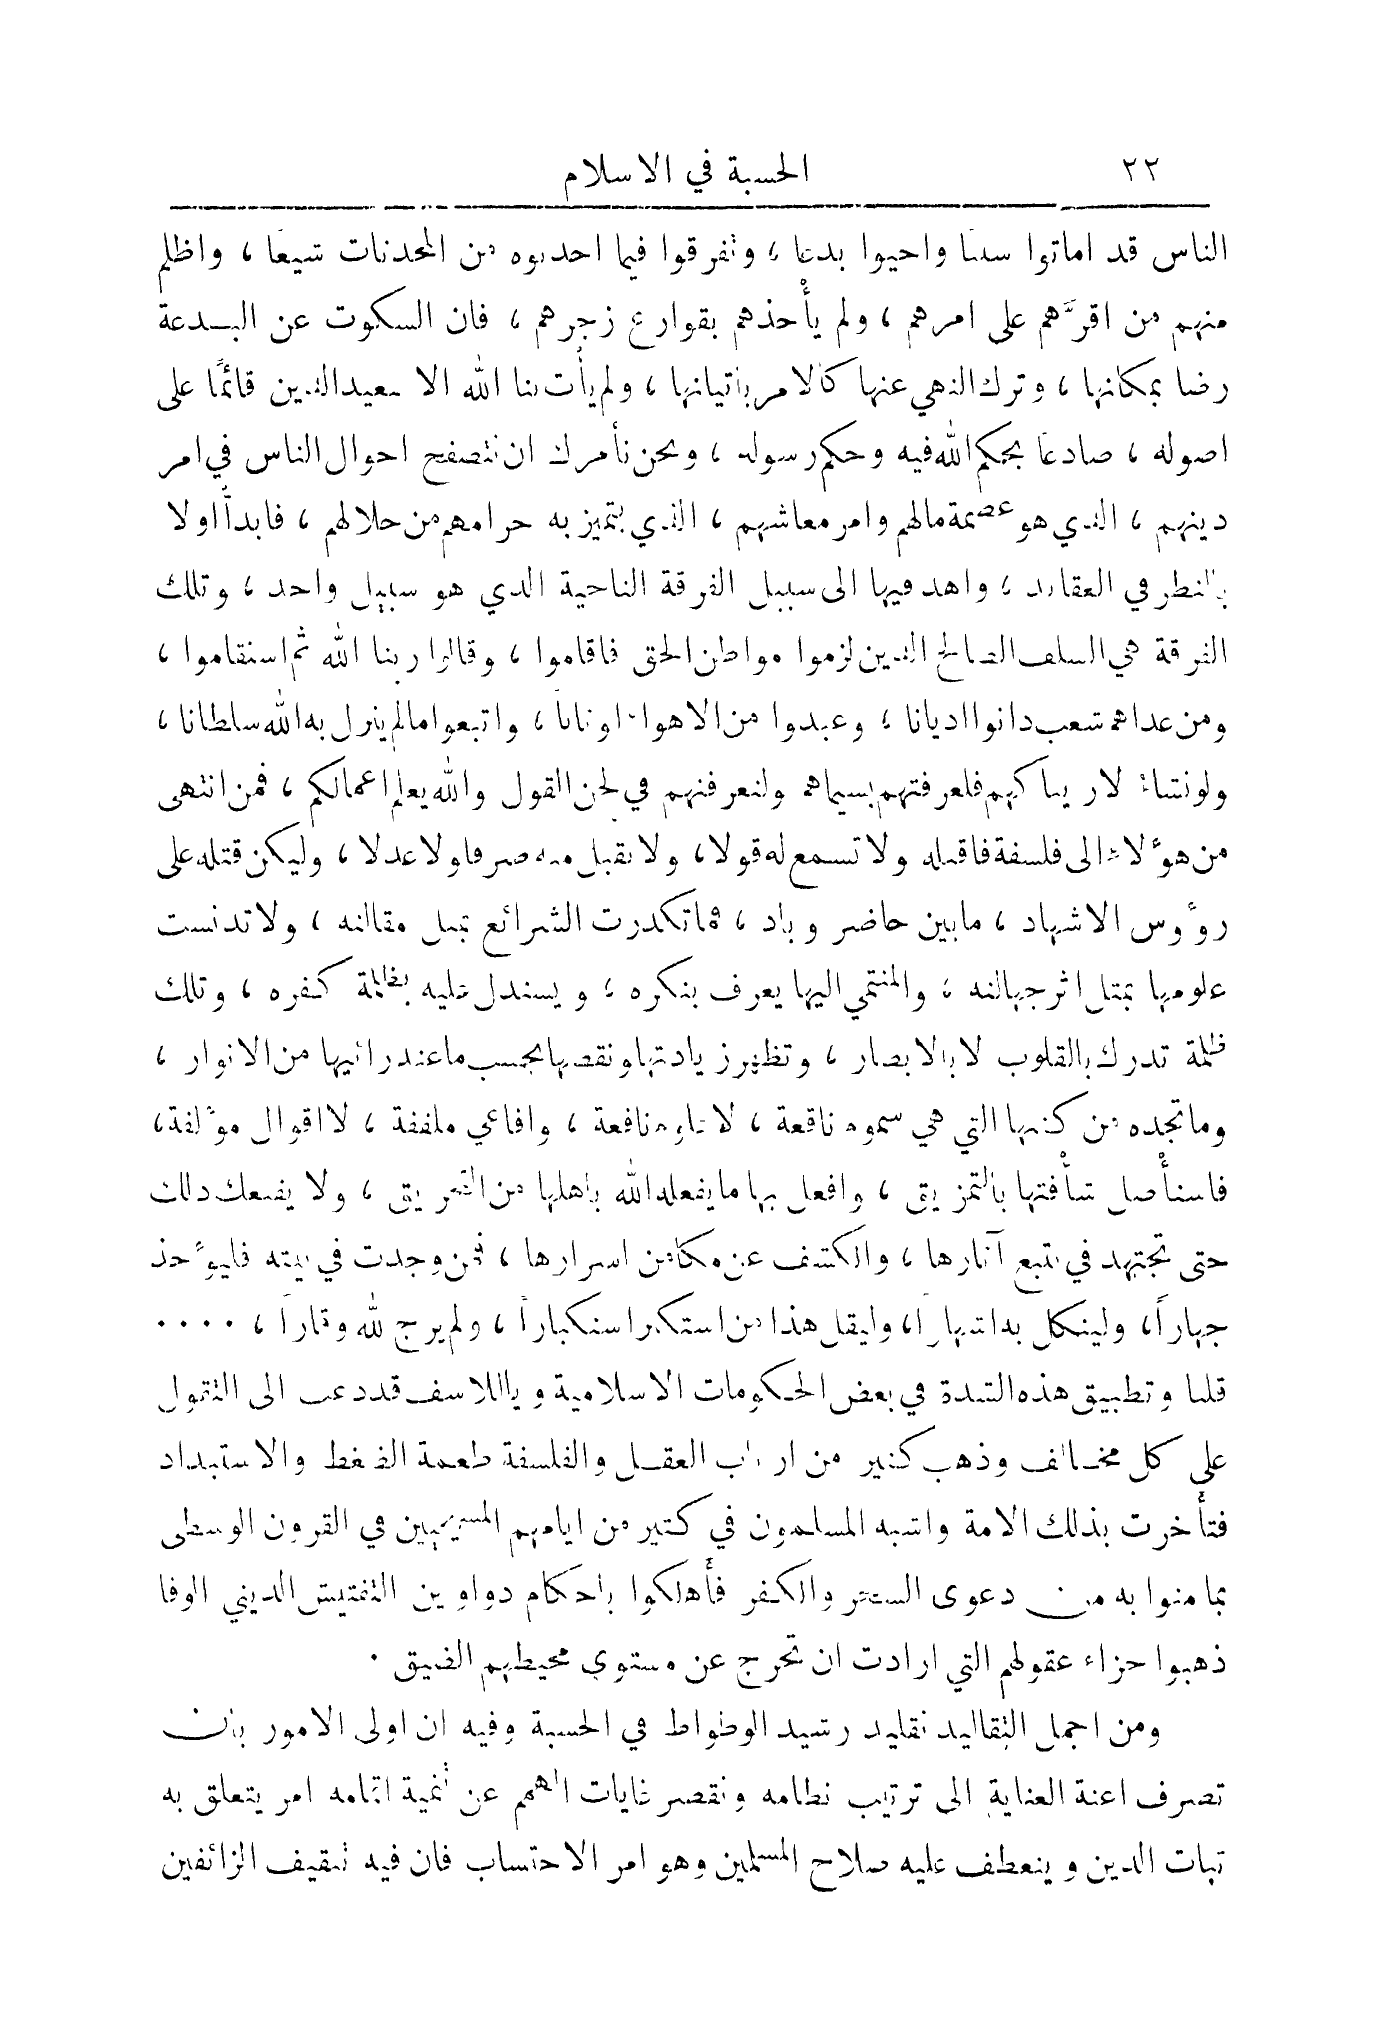 ٢٢ الحسبة في الاسلام
الناس قد اماتوا سننا واحيوا بدعا ، وتفرقوا فيما احدثوه من المحدثات شيعا ، واظلم
منهم من اقرَّهم على امرهم ، ولم يأخذهم بقوارع زجرهم ، فان السكوت عن البدعة
رضا بمكانها ، وترك النهي عنها كالامر باتيانها ، ولم يأت بنا الله الا ليعيد الدين قائمًا على
اصوله ، صادعا بحكم الله فيه وحكم رسوله ، ونحن نأمرك ان تتصفح احوال الناس في امر
دينهم ، الذي هو عصمة مالهم وامر معاشهم ، الذي يتميز به حرامهم من حلالهم ، فابدأ اولا
بالنظر في العقائد ، واهد فيها الى سبيل الفرقة الناجية الذي هو سبيل واحد ، وتلك
الفرقة هي السلف الصالح الذين لزموا مواطن الحق فاقاموا ، وقالوا ربنا الله ثم استقاموا ،
ومن عداهم شعب دانوا اديانا ، وعبدوا من الاهواء اوثانا ، واتبعوا مالم ينزل به الله سلطانا ،
ولو نشاء لاريناكهم فلعرفتهم بسيماهم ولتعرفنهم في لحن القول والله يعلم اعمالكم ، فمن انتهى
من هؤلاء الى فلسفة فاقتله ولا تسمع له قولا ، ولا تقبل منه صرفا ولا عدلا ، وليكن قتله على
رؤوس الاشهاد ، مابين حاضر وباد ، فما تكدرت الشرائع بمثل مقالته ، ولا تدنست
علومها بمثل اثر جهالته ، والمنتمي اليها يعرف بنكره ، ويستدل عليه بظلمة كفره ، وتلك
ظلمة تدرك بالقلوب لا بالابصار ، وتظهر زيادتها ونقصها بحسب ما عند رائيها من الانوار ،
وما تجده من كتبها التي هي سموم ناقعة ، لا علوم نافعة ، وافاعي ملففة ، لا اقوال مؤلفة ،
فاستأصل شأفتها بالتمزيق ، وافعل بها ما يفعله الله باهلها من التحريق ، ولا يقنعك ذلك
حتى تجتهد في تتبع آثارها ، والكشف عن مكامن اسرارها ، فمن وجدت في بيته فليؤخذ
جهاراً ، ولينكل به اشهارا ، وليقل هذا من استكبر استكباراً ، ولم يرج لله وقاراً ، ٠٠٠٠
قلنا وتطبيق هذه الشدة في بعض الحكومات الاسلامية وياللاسف قد دعت الى التقول
على كل مخالف وذهب كثير من ارباب العقل والفلسفة طعمة الضغط والاستبداد
فتأخرت بذلك الامة واشبه المسلمون في كثير من ايامهم المسيحيين في القرون الوسطى
بما منوا به من دعوى الستر والكفر فأهلكوا باحكام دواوين التفتيش الديني الوفا
ذهبوا جزاء عقولهم التي ارادت ان تخرج عن مستوى محيطهم الضيق ٠
ومن اجمل التقاليد تقليد رشيد الوطواط في الحسبة وفيه ان اولى الامور بان
تصرف اعنة العناية الى ترتيب نظامه وتقصر غايات الهمم عن تنمية اتمامه امر يتعلق به
ثبات الدين وينعطف عليه صلاح المسلمين وهو امر الاحتساب فان فيه تثقيف الزائفين